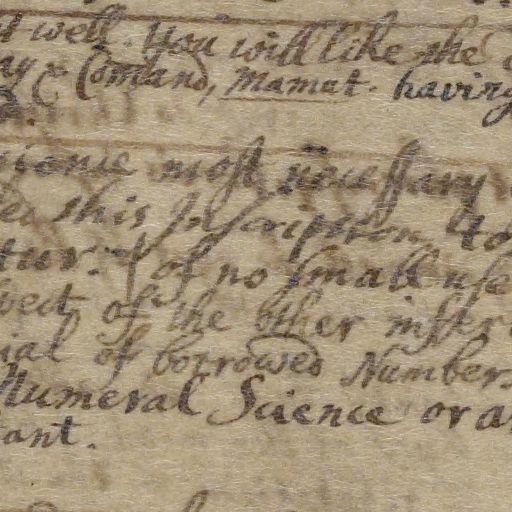 well. You will like the
& Comand, Mamat. having
most necessary
this Inscription to
tur. & of no small use
of the other
ial of borrowed Number
Numeral Science or
tant.